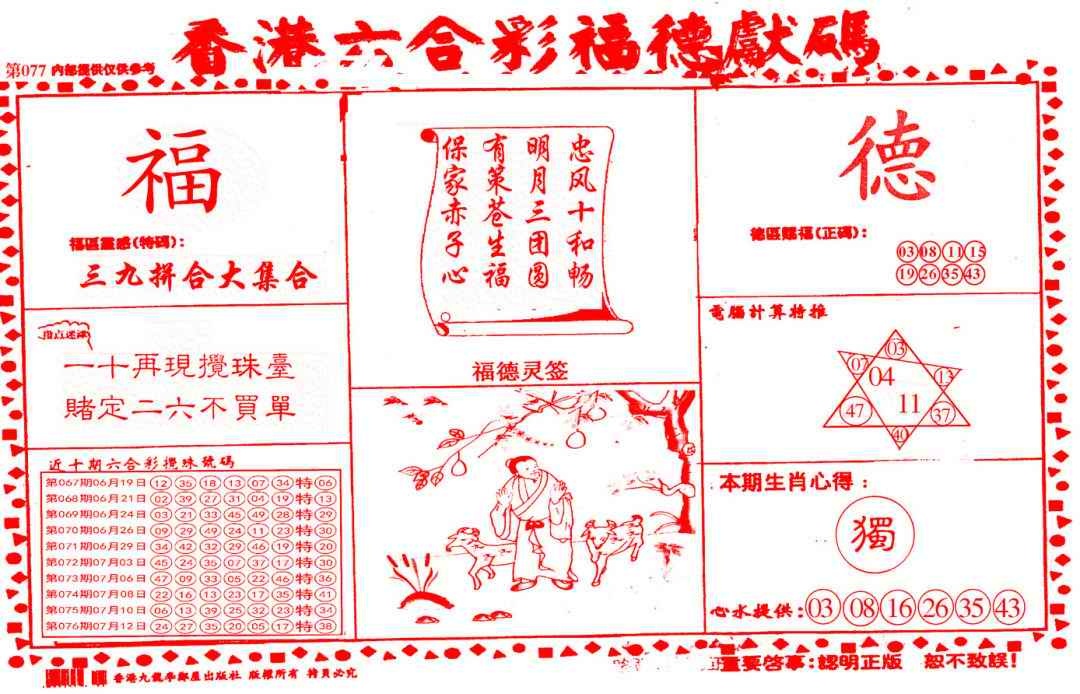 香港六合彩福德獻碼
第077 内部提供仅供参考
福
福區靈感(特碼)：
三九拼合大集合
一十再現攪珠臺
賭定二六不買單
近十期六合彩攪珠號碼
第067期06月19日 12 35 18 13 07 34 特 06
第068期06月21日 02 39 27 31 04 19 特 13
第069期06月24日 03 21 33 45 49 28 特 29
第070期06月26日 09 29 49 24 11 23 特 30
第071期06月29日 34 42 32 29 46 19 特 20
第072期07月03日 45 24 35 07 37 17 特 30
第073期07月06日 47 09 33 05 22 46 特 36
第074期07月08日 22 16 13 23 17 35 特 41
第075期07月10日 06 13 39 25 32 23 特 34
第076期07月12日 24 27 35 20 05 17 特 38
忠风十和畅
明月三团圆
有策苍生福
保家赤子心
福德灵签
德
德區賜福(正碼)：
03 08 11 15
19 26 35 43
電腦計算特推
03
07 04 13
47 11 37
40
本期生肖心得：
獨
心水提供：03 08 16 26 35 43
香港九龍學鄰屋出版社 版權所有
重要啓事：認明正版 恕不致誤！